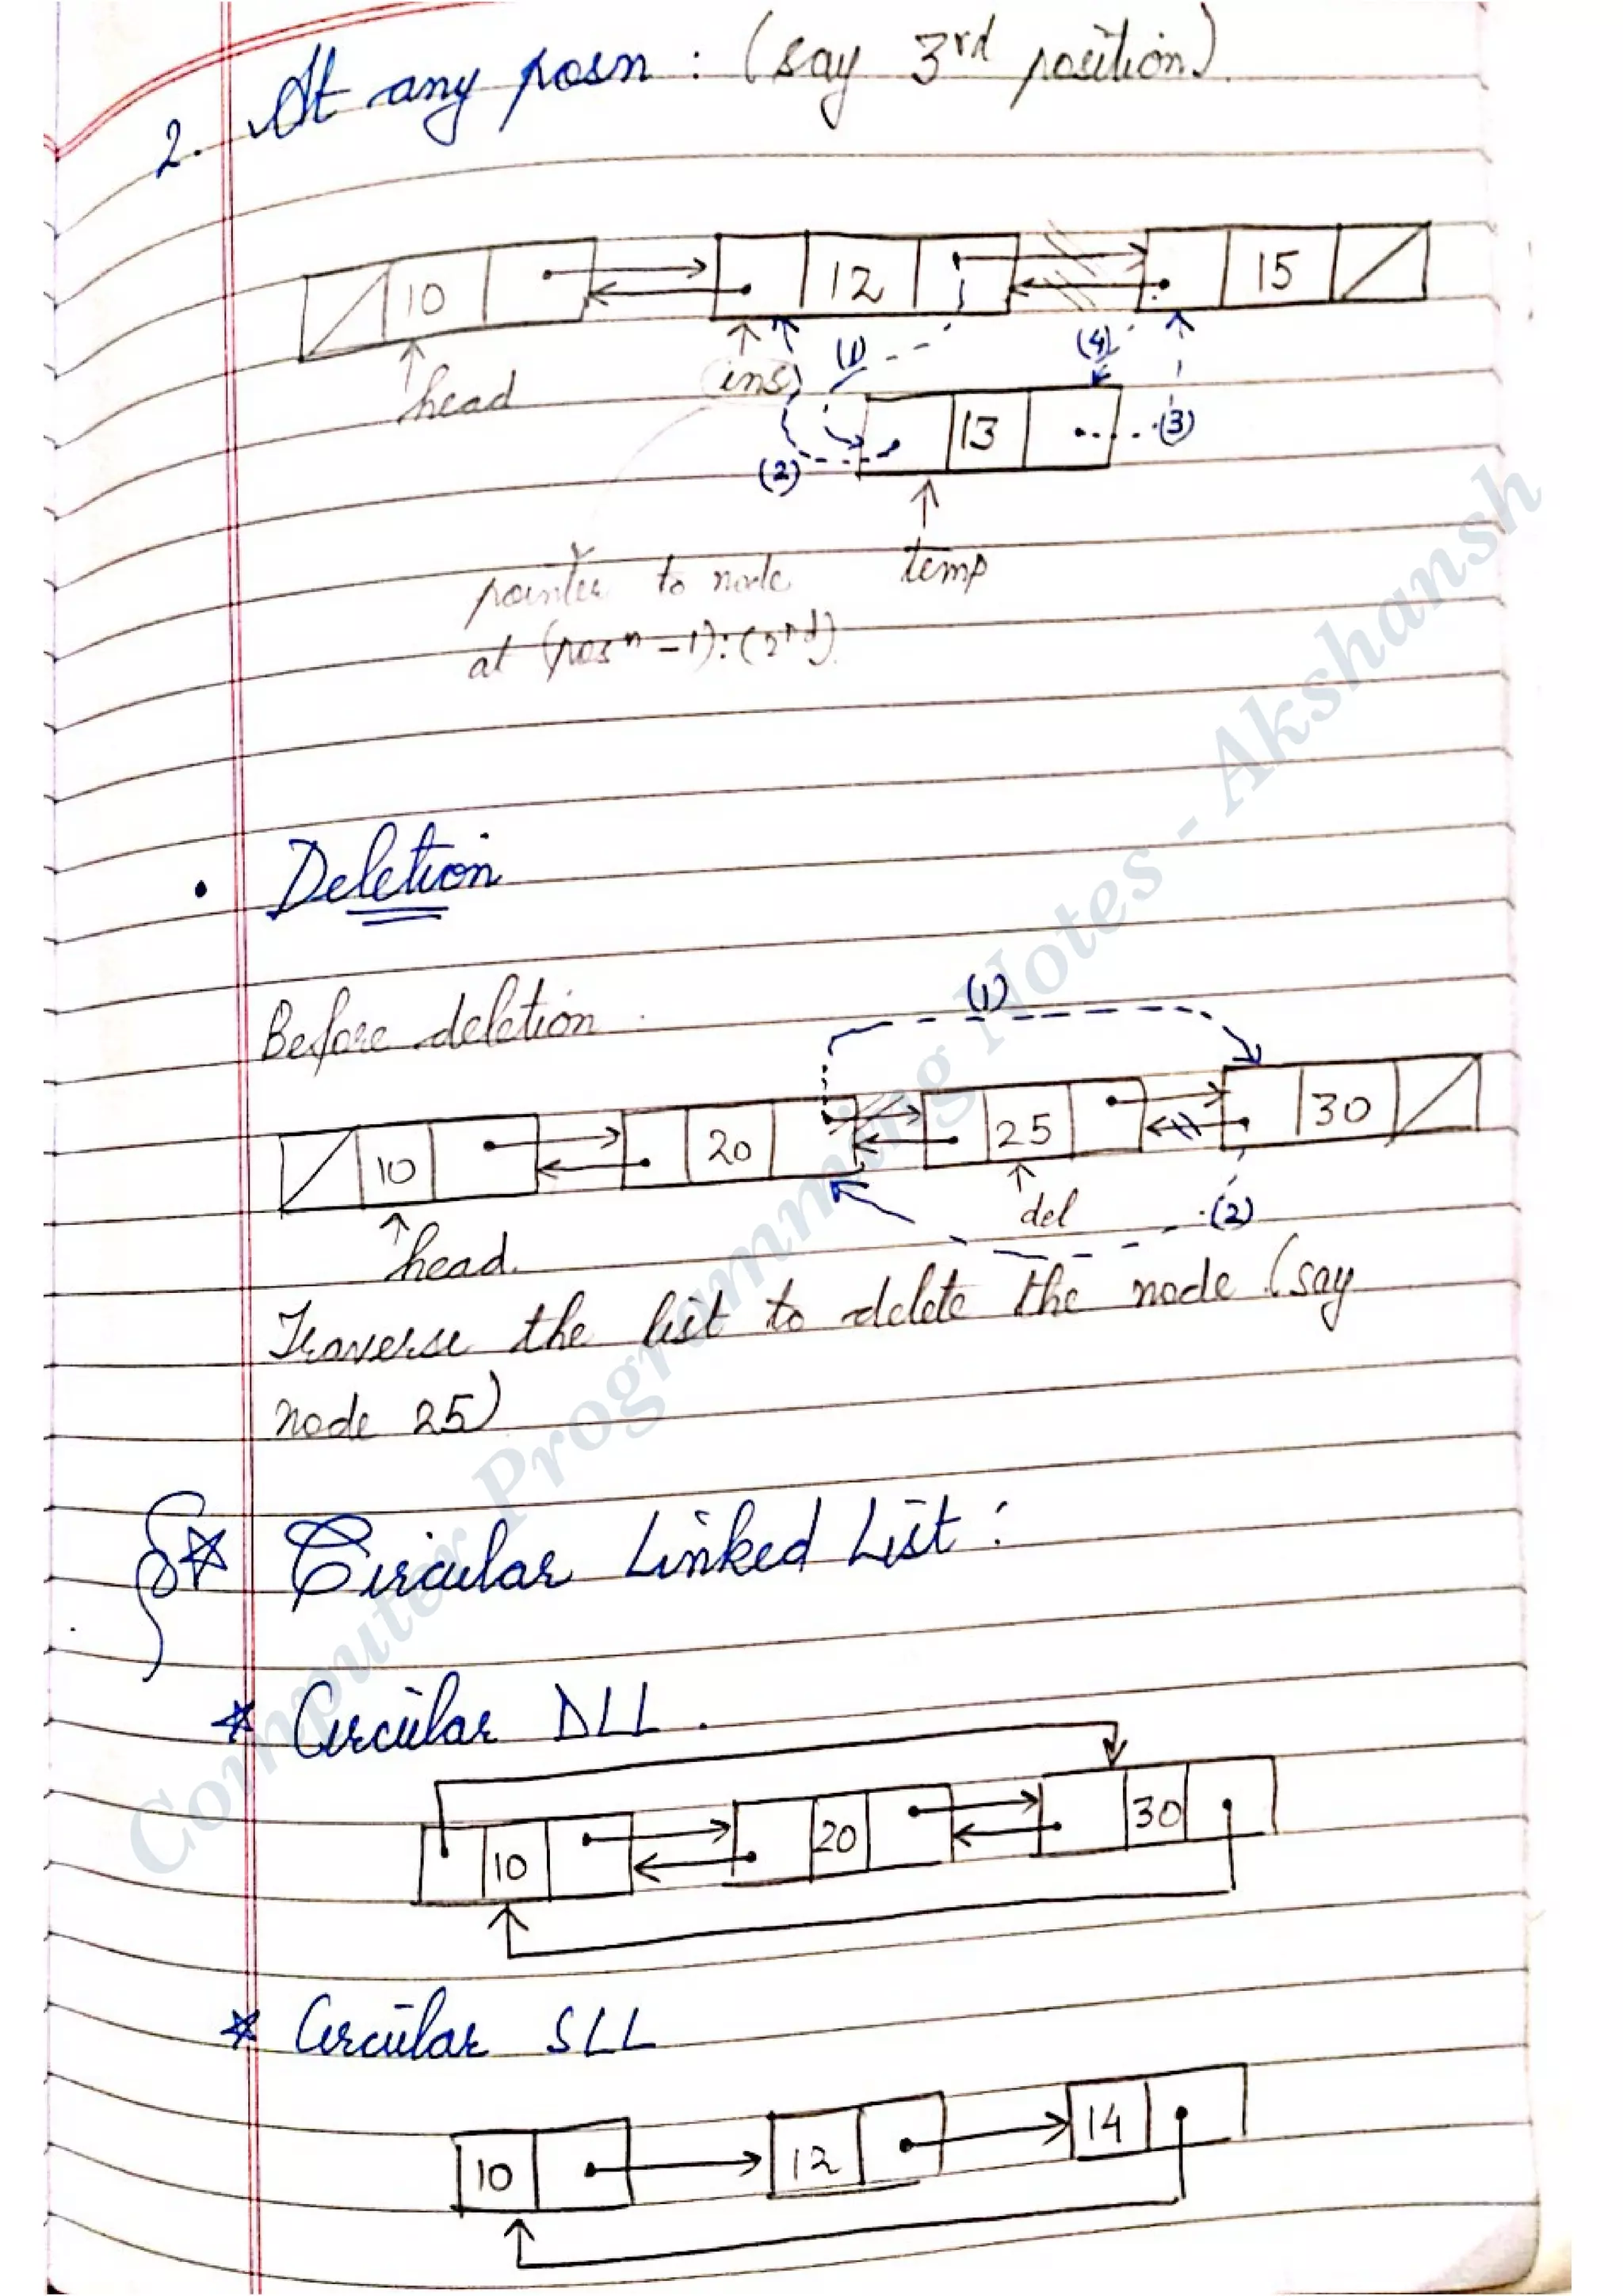 2. At any posn : (say 3rd position)
10 12 15
head (ins) (1) (4)
13 (3)
(2)
pointer to node temp
at (posn - 1) : (2nd)
• Deletion
Before deletion
(1)
10 20 25 30
head. del (2)
Traverse the list to delete the node (say
node 25)
Circular Linked List :
* Circular DLL.
10 20 30
* Circular SLL
10 12 14
Computer Programming Notes - Akshansh